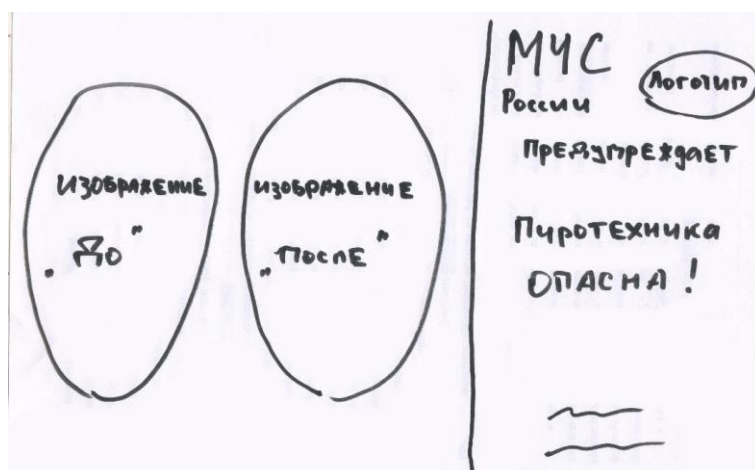 ИЗОБРАЖЕНИЕ
"ДО"
ИЗОБРАЖЕНИЕ
"ПОСЛЕ"
МЧС
России
Логотип
ПРЕДУПРЕЖДАЕТ
Пиротехника
ОПАСНА!